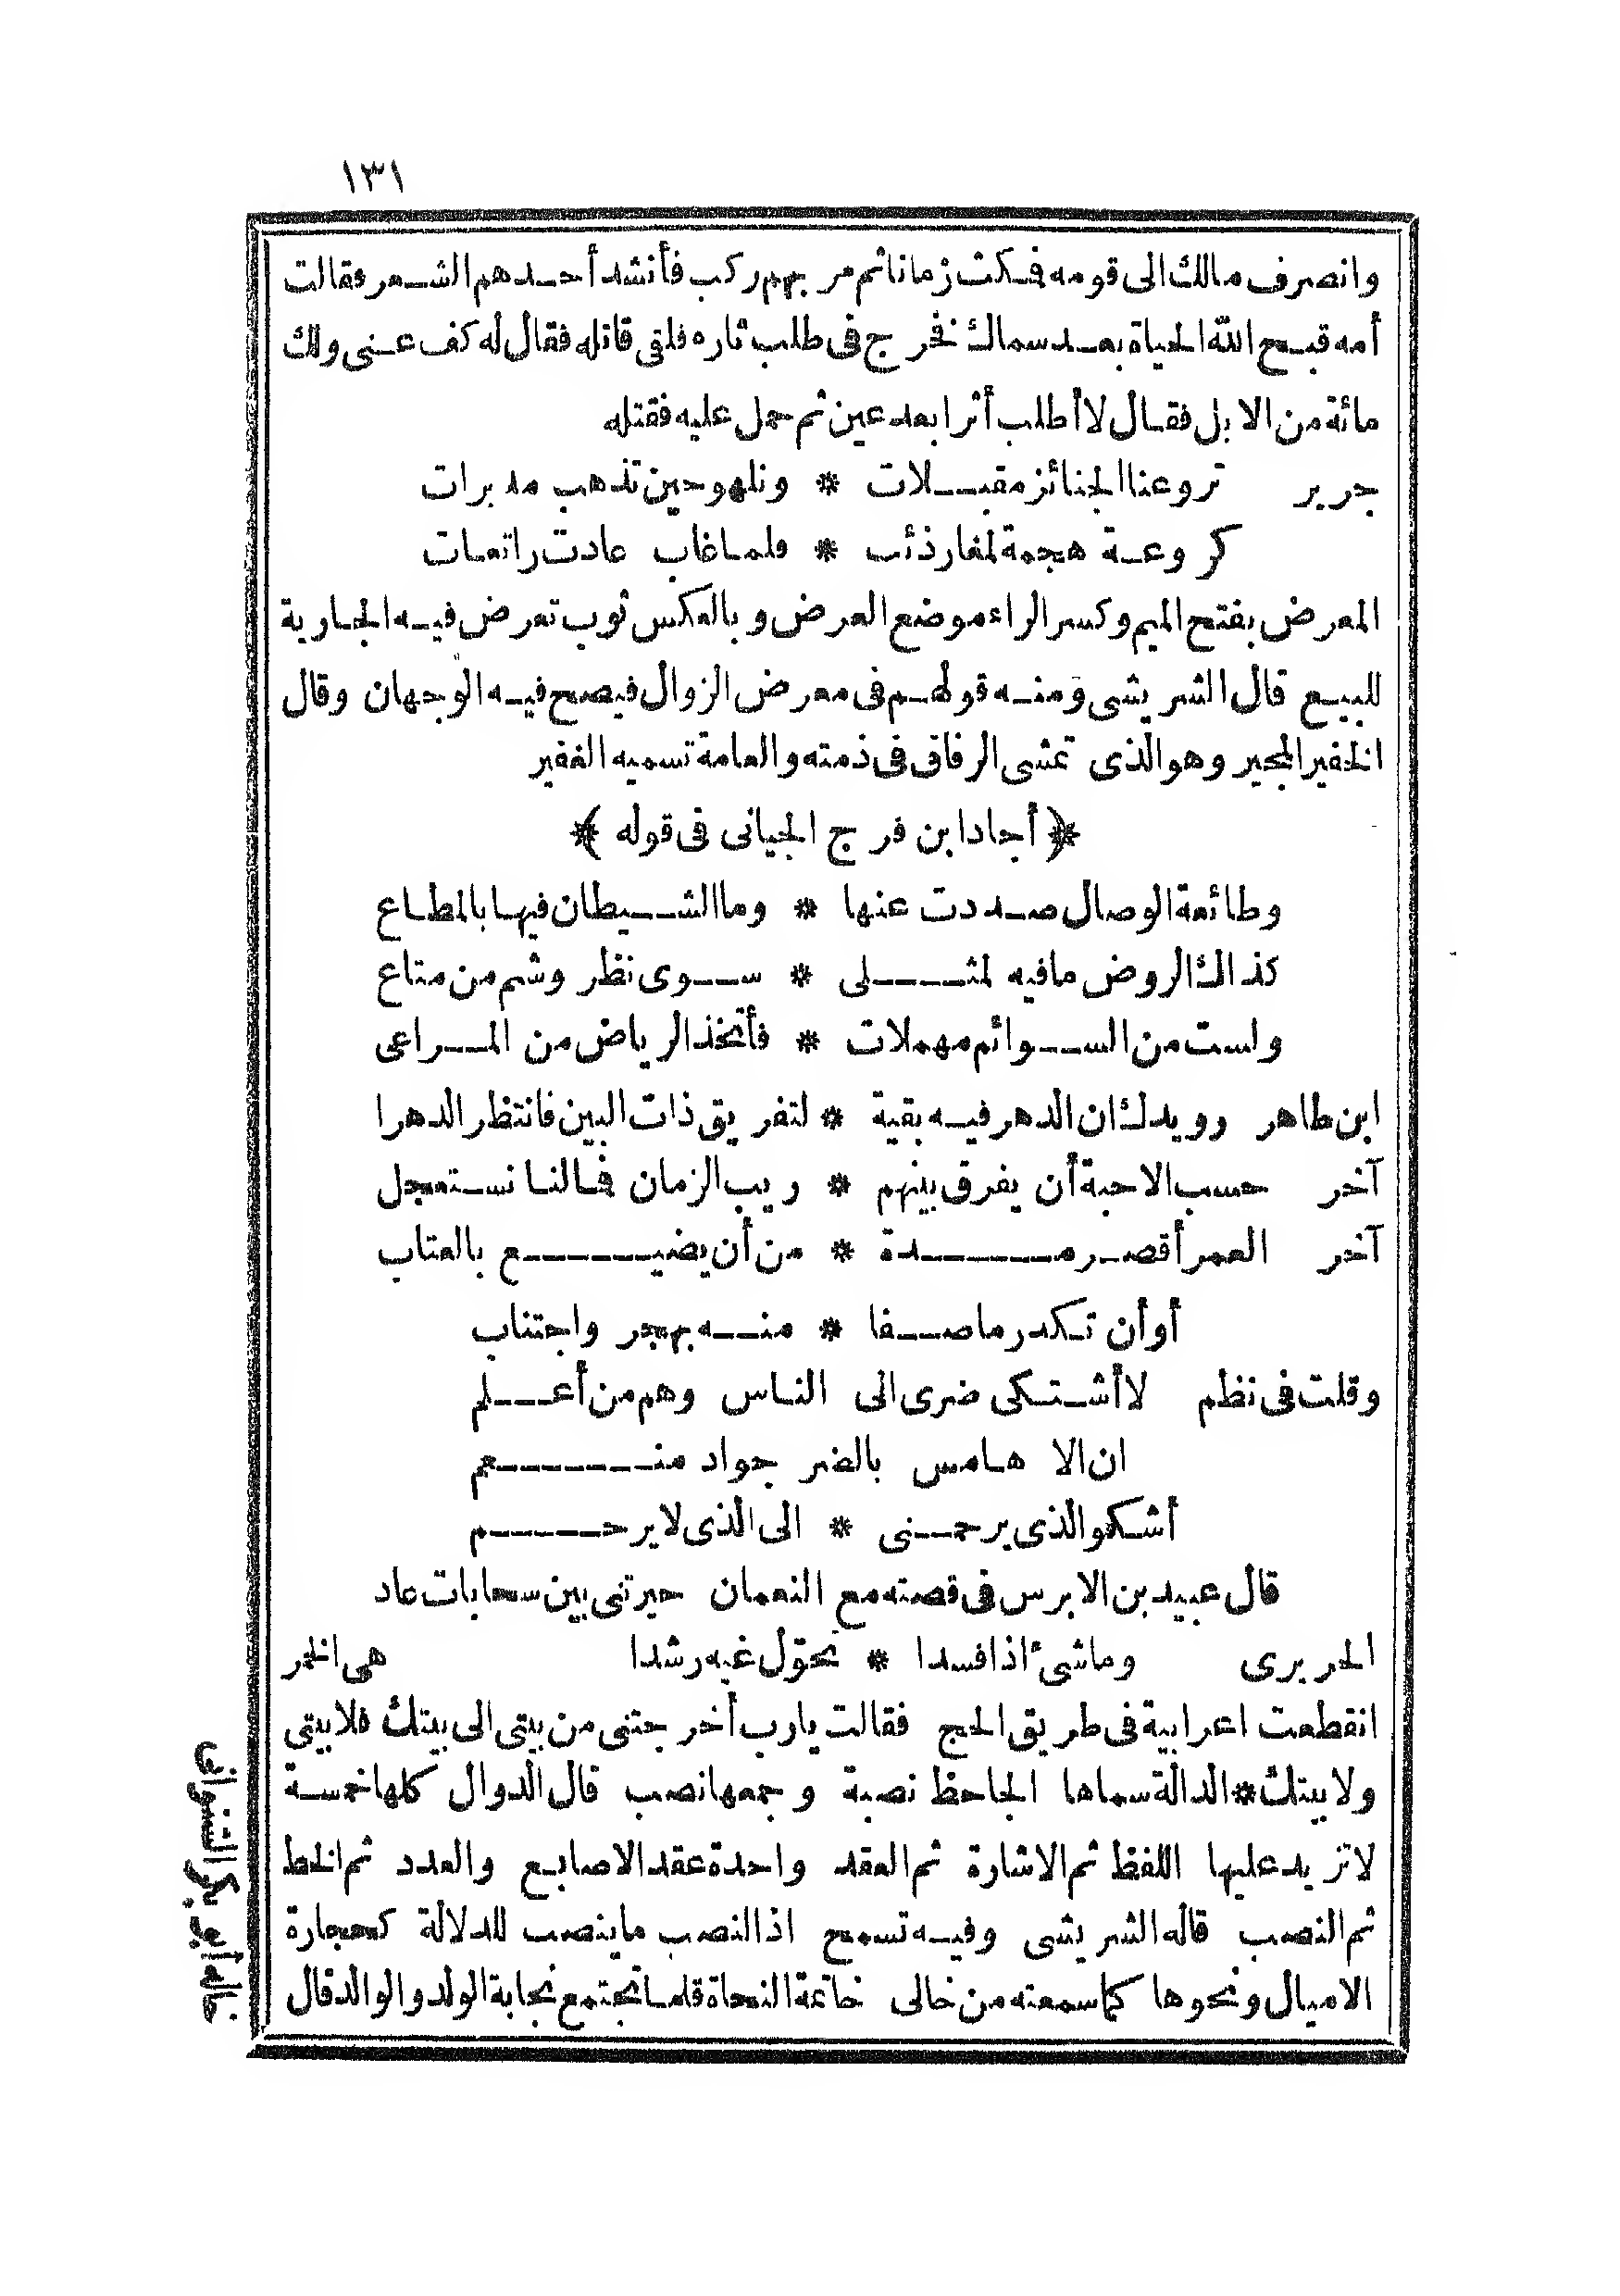 ١٣١
وانصرف مالك الى قومه فمكث زمانا ثم مر بهم ركب فأنشد أحدهم الشعر فقالت
أمه قبح الله الحياة بعد سماك فخرج فى طلب ثاره فلقى قاتله فقال له كف عنى ولك
مائة من الابل فقال لا أطلب أثرا بعد عين ثم حمل عليه فقتله
جرير تروعنا الجنائز مقبلات * ونلهو حين تذهب مدبرات
كروعة هجمة لمغار ذئب * فلما غاب عادت راتعات
المعرض بفتح الميم وكسر الراء موضع العرض وبالعكس ثوب تعرض فيه الجارية
للبيع قال الشريشى ومنه قولهم فى معرض الزوال فيصح فيه الوجهان وقال
الخفير المجير وهو الذى تمشى الرفاق فى ذمته والعامة تسميه الغفير
﴿ أجاد ابن فرج الجيانى فى قوله ﴾
وطائعة الوصال صددت عنها * وما الشيطان فيها بالمطاع
كذاك الروض ما فيه لمثلى * سوى نظر وشم من متاع
ولست من السوائم مهملات * فأتخذ الرياض من المراعى
ابن طاهر رويدك ان الدهر فيه بقية * لتفريق ذات البين فانتظر الدهرا
آخر حسب الاحبة أن يفرق بينهم * ريب الزمان فما لنا نستعجل
آخر العمر أقصر مدة * من أن يضيع بالعتاب
أو أن تكدر ما صفا * منه بهجر واجتناب
وقلت فى نظم لا أشتكى ضرى الى الناس وهم من أعلم
ان الاه امس بالضر جواد منعم
أشكو الذى يرحمنى * الى الذى لا يرحم
قال عبيد بن الابرس فى قصته مع النعمان حيرتنى بين سحابات عاد
الحريرى وما شىء اذا فسدا * تحوّل غيه رشدا هى الخمر
انقطعت اعرابية فى طريق الحج فقالت يا رب أخرجتنى من بيتى الى بيتك فلا بيتى
ولا بيتك * الدالة سماها الجاحظ نصبة وجمعها نصب قال الدوال كلها خمسة
لا تزيد عليها اللفظ ثم الاشارة ثم العقد واحدة عقد الاصابع والعدد ثم الخط
ثم النصب قاله الشريشى وفيه تسمح اذ النصب ما ينصب للدلالة كحجارة
الاميال ونحوها كما سمعته من خالى خاتمة النحاة قلما تجتمع نجابة الولد والوالد قال
خاله أبو بكر الشنوانى